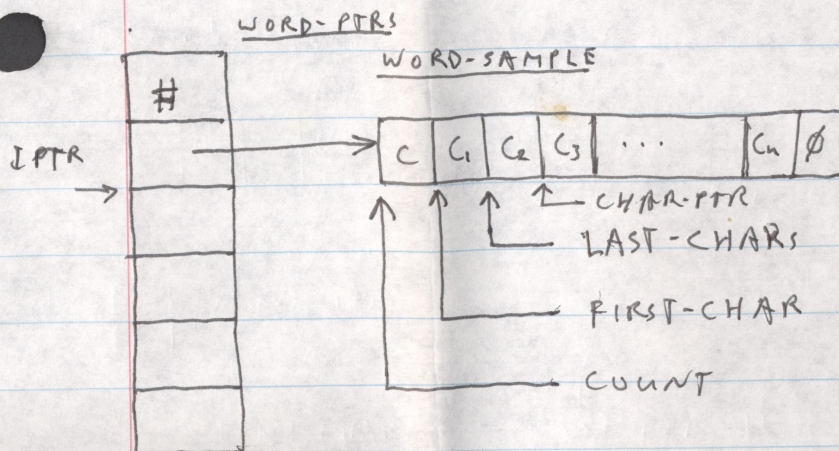 WORD-PTRS
WORD-SAMPLE
#
IPTR
C C₁ C₂ C₃ ... Cn ∅
CHAR-PTR
LAST-CHARS
FIRST-CHAR
COUNT